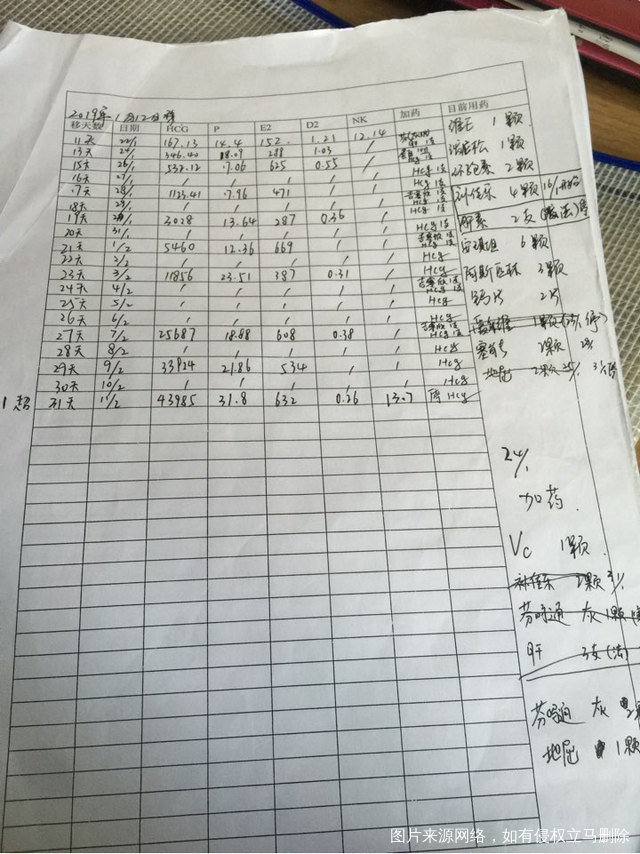 2019年1月12日移
移天数 日期 HCG P E2 D2 NK 加药 目前用药
11天 22/1 167.13 14.4 152. 1.21 12.14
13天 24/1 346.40 18.07 288 1.03 /
15天 26/1 537.12 7.06 625 0.55 / HCG 1支
16天 27/1 / / / / / HCG 1支
17天 28/1 1123.41 7.96 471 / / HCG 1支
18天 29/1 / / / / / HCG 1支
19天 3028 13.64 287 0.36 / HCG 1支
20天 31/1 / / / / / HCG 1支
21天 1/2 5460 12.36 669 / / HCG
22天 2/2 / / / / / HCG
23天 3/2 11856 23.51 387 0.31 / HCG
24天 4/2 / / / / / HCG
25天 5/2 / / / / / HCG
26天 6/2 / / / / / HCG
27天 7/2 25687 18.88 608 0.38 / HCG
28天 8/2 / / / / / HCG
29天 9/2 33924 21.86 534 / / HCG
30天 10/2 / / / / / HCG
1超 31天 11/2 43985 31.8 632 0.26 13.7 停HCG
维E 1颗
1颗
环孢素 2颗
补佳乐 4颗
肝素 2支
6颗
阿斯匹林 3颗
钙片 2片
1颗
2颗
地屈 2颗
24/1
加药.
Vc 1颗.
补佳乐 2颗
芬吗通 灰 1颗
肝 3支
芬吗通 灰
地屈 1颗
图片来源网络，如有侵权立马删除